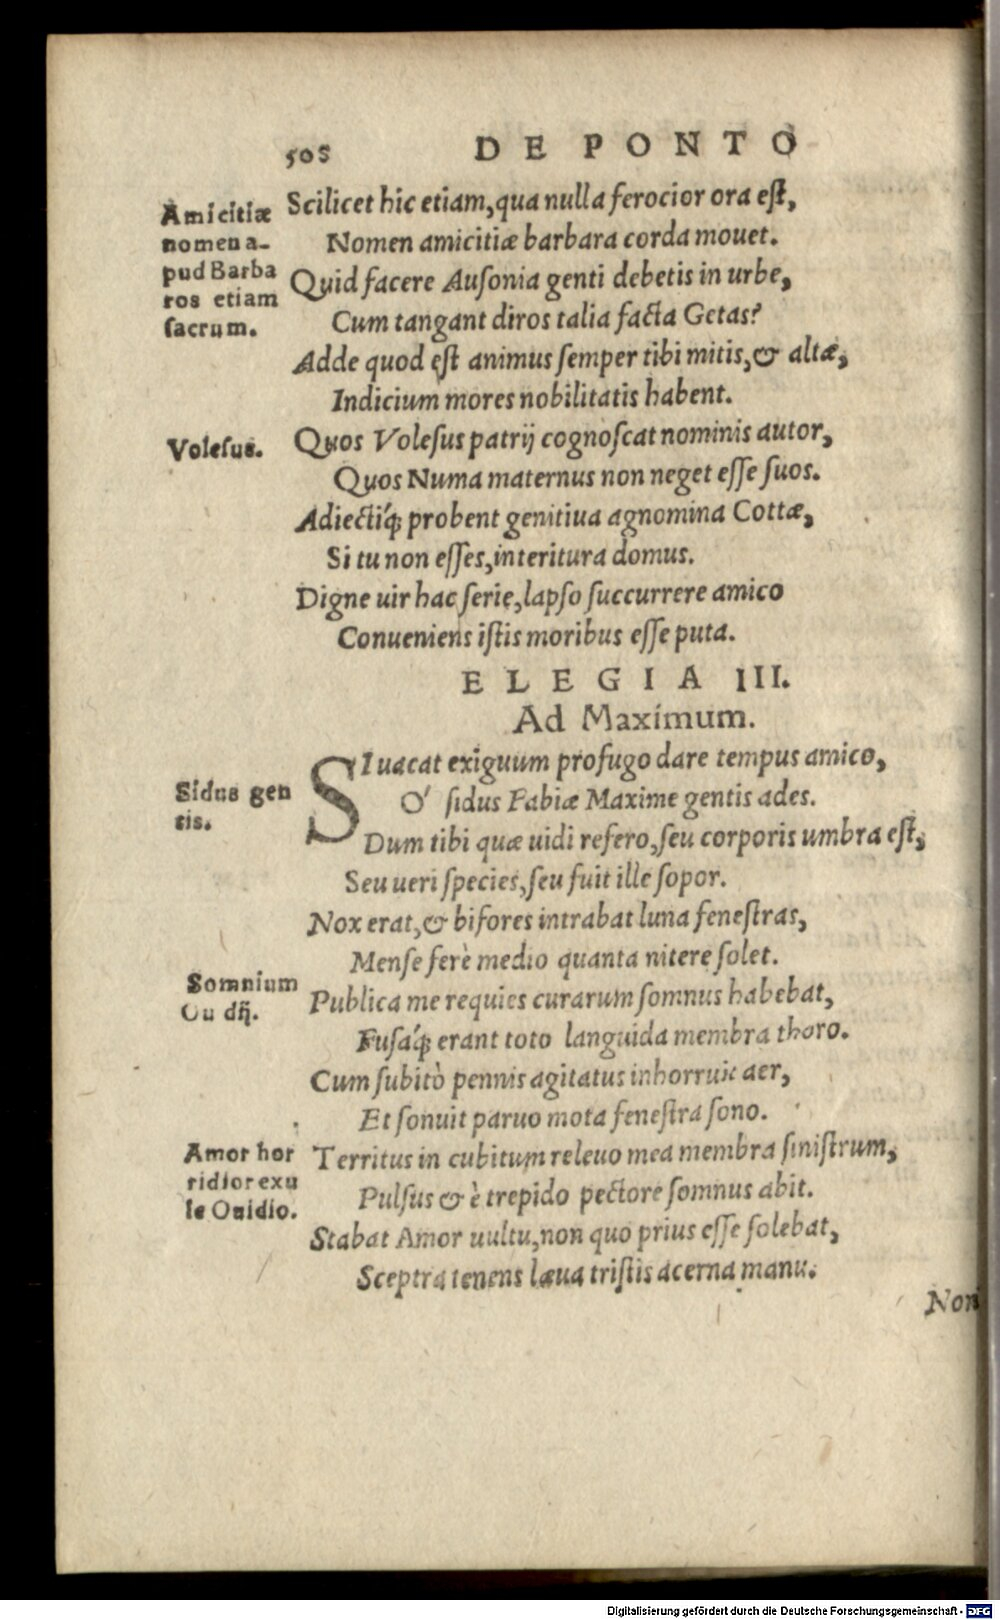 508 DE PONTO
Amicitiæ
nomen a-
pud Barba
ros etiam
sacrum.
Scilicet hic etiam, qua nulla ferocior ora eſt,
Nomen amicitiæ barbara corda mouet.
Quid facere Auſonia genti debetis in urbe,
Cum tangant diros talia facta Getas?
Adde quod eſt animus ſemper tibi mitis, & altæ,
Indicium mores nobilitatis habent.
Voleſus.
Quos Voleſus patrij cognoſcat nominis autor,
Quos Numa maternus non neget eſſe ſuos.
Adiectiq́; probent genitiua agnomina Cottæ,
Si tu non eſſes, interitura domus.
Digne uir hac ſerie, lapſo ſuccurrere amico
Conueniens iſtis moribus eſſe puta.
ELEGIA III.
Ad Maximum.
Sidus gen
tis.
SI uacat exiguum profugo dare tempus amico,
O' ſidus Fabiæ Maxime gentis ades.
Dum tibi quæ uidi refero, ſeu corporis umbra eſt,
Seu ueri ſpecies, ſeu fuit ille ſopor.
Nox erat, & bifores intrabat luna feneſtras,
Menſe ferè medio quanta nitere ſolet.
Somnium
Ouidij.
Publica me requies curarum ſomnus habebat,
Fuſaq́; erant toto languida membra thoro.
Cum ſubitò pennis agitatus inhorruit aer,
Et ſonuit paruo mota feneſtra ſono.
Amor hor
ridior exu
le Ouidio.
Territus in cubitum releuo mea membra ſiniſtrum,
Pulſus & è trepido pectore ſomnus abit.
Stabat Amor uultu, non quo prius eſſe ſolebat,
Sceptra tenens læua triſtis acerna manu.
Non
Digitalisierung gefördert durch die Deutsche Forschungsgemeinschaft - DFG